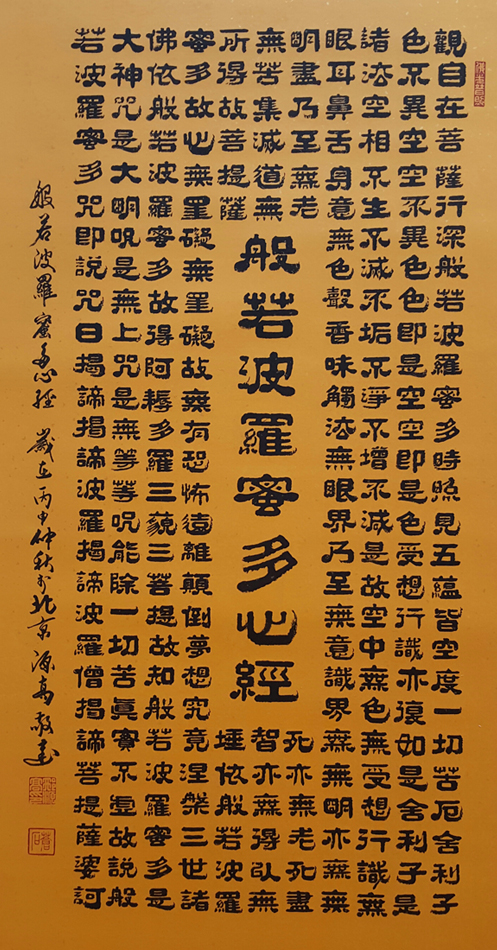 觀自在菩薩行深般若波羅蜜多時照見五蘊皆空度一切苦厄舍利子
色不異空空不異色色即是空空即是色受想行識亦復如是舍利子是
諸法空相不生不滅不垢不淨不增不減是故空中無色無受想行識無
眼耳鼻舌身意無色聲香味觸法無眼界乃至無意識界無無明亦無無
明盡乃至無老
死亦無老死盡
無苦集滅道無
智亦無得以無
所得故菩提薩
埵依般若波羅
蜜多故心無罣礙無罣礙故無有恐怖遠離顛倒夢想究竟涅槃三世諸
佛依般若波羅蜜多故得阿耨多羅三藐三菩提故知般若波羅蜜多是
大神咒是大明呪是無上咒是無等等呪能除一切苦眞實不虛故說般
若波羅蜜多咒即說咒曰揭諦揭諦波羅揭諦波羅僧揭諦菩提薩婆訶
般若波羅蜜多心經
般若波羅蜜多心經 歲在丙申仲秋於北京 源高敬書